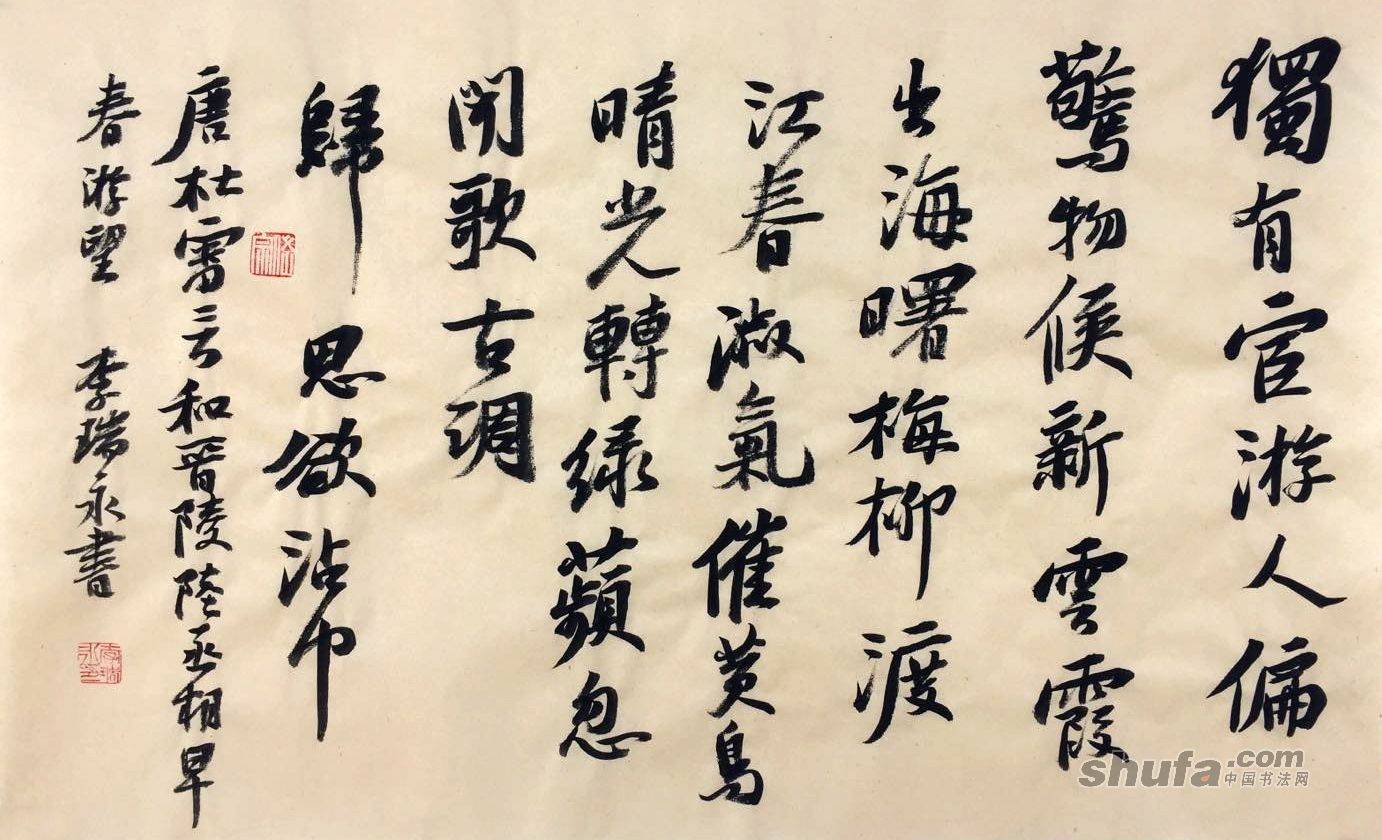 獨有宦游人偏
驚物候新雲霞
出海曙梅柳渡
江春淑氣催黄鳥
晴光轉緑蘋忽
聞歌古調
歸思欲沾巾
唐杜審言和晋陵陸丞相早
春游望 李瑞永書
shufa.com
中国书法网